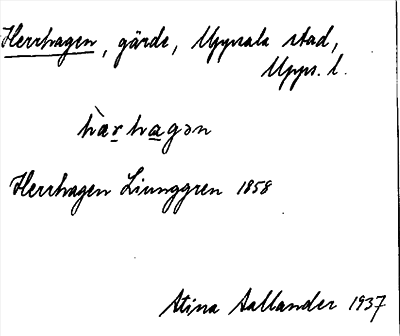 Herrhagen, gärde, Uppsala stad,
Upps. l.
hàrhagən
Herrhagen Ljunggren 1858
Stina Aallander 1937